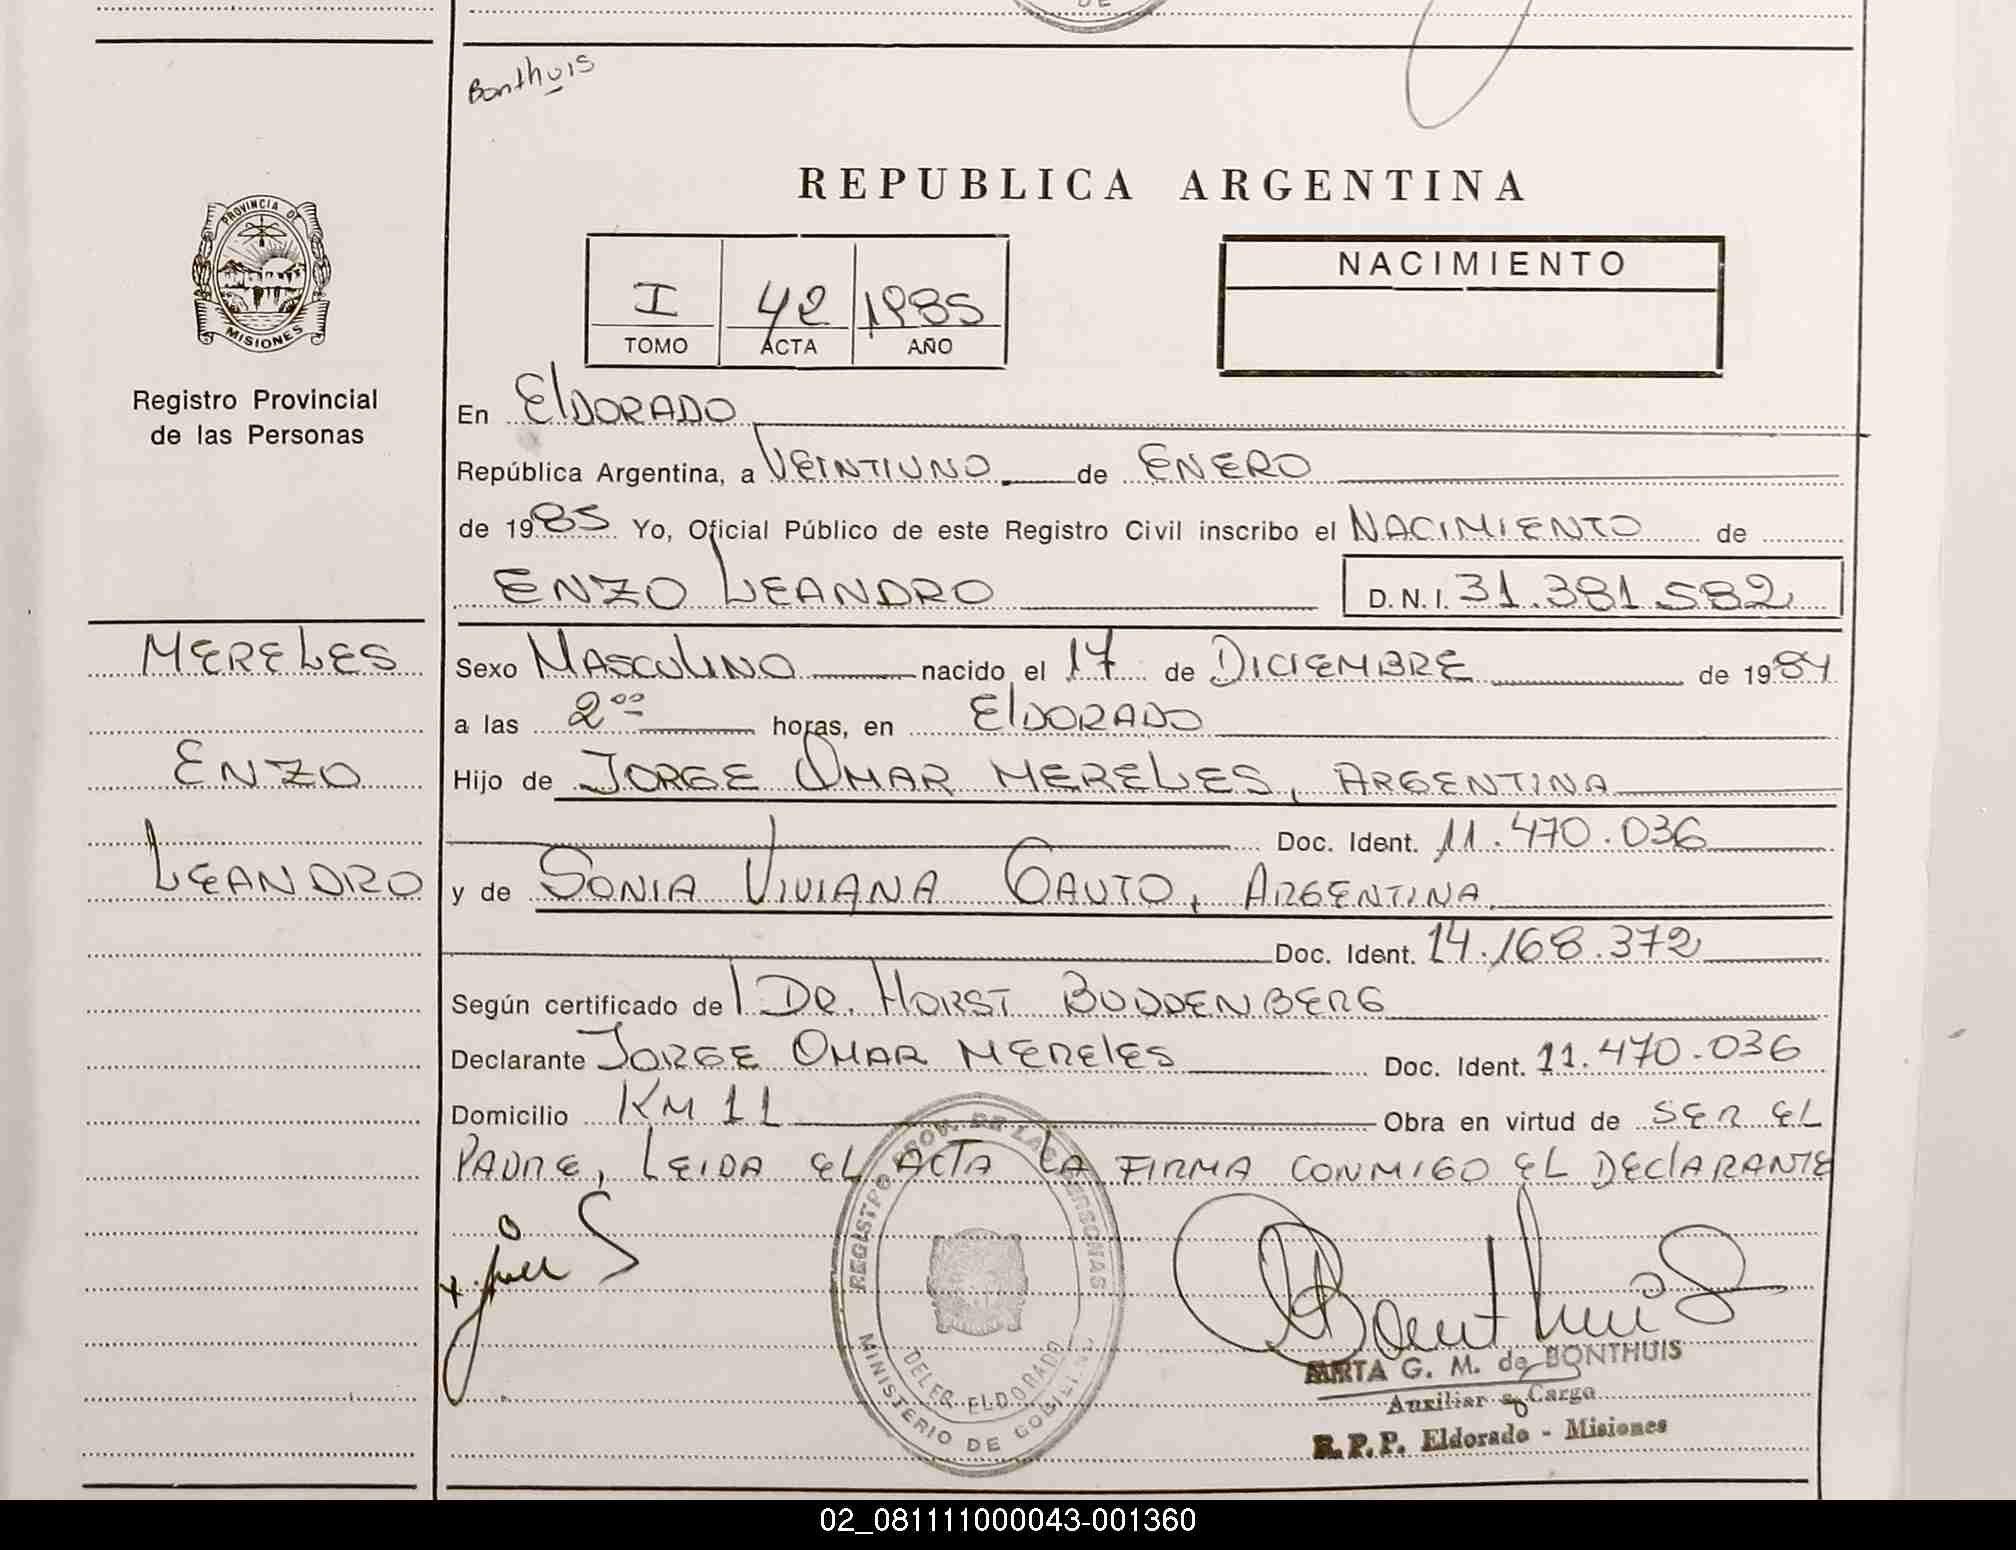 Bonthuis
REPUBLICA ARGENTINA
PROVINCIA DE
MISIONES
Registro Provincial
de las Personas
I 42 1985
TOMO ACTA AÑO
NACIMIENTO
En ELDORADO
República Argentina, a VEINTIUNO de ENERO
de 1985 Yo, Oficial Público de este Registro Civil inscribo el NACIMIENTO de
ENZO LEANDRO D.N.I. 31.381.582
MERELES
ENZO
LEANDRO
Sexo MASCULINO nacido el 17 de DICIEMBRE de 1984
a las 2 00 horas, en ELDORADO
Hijo de JORGE OMAR MERELES, ARGENTINA
Doc. Ident. 11.470.036
y de SONIA VIVIANA GAUTO, ARGENTINA
Doc. Ident. 14.168.372
Según certificado de DR. HORST BUDDENBERG
Declarante JORGE OMAR MERELES Doc. Ident. 11.470.036
Domicilio KM 11 Obra en virtud de SER EL
PADRE, LEIDA EL ACTA LA FIRMA CONMIGO EL DECLARANTE
REGISTRO PROV. DE LAS PERSONAS
DELEG. ELDORADO
MINISTERIO DE GOBIERNO
Bonthuis
MIRTA G. M. de BONTHUIS
Auxiliar a Cargo
R.P.P. Eldorado - Misiones
02_081111000043-001360